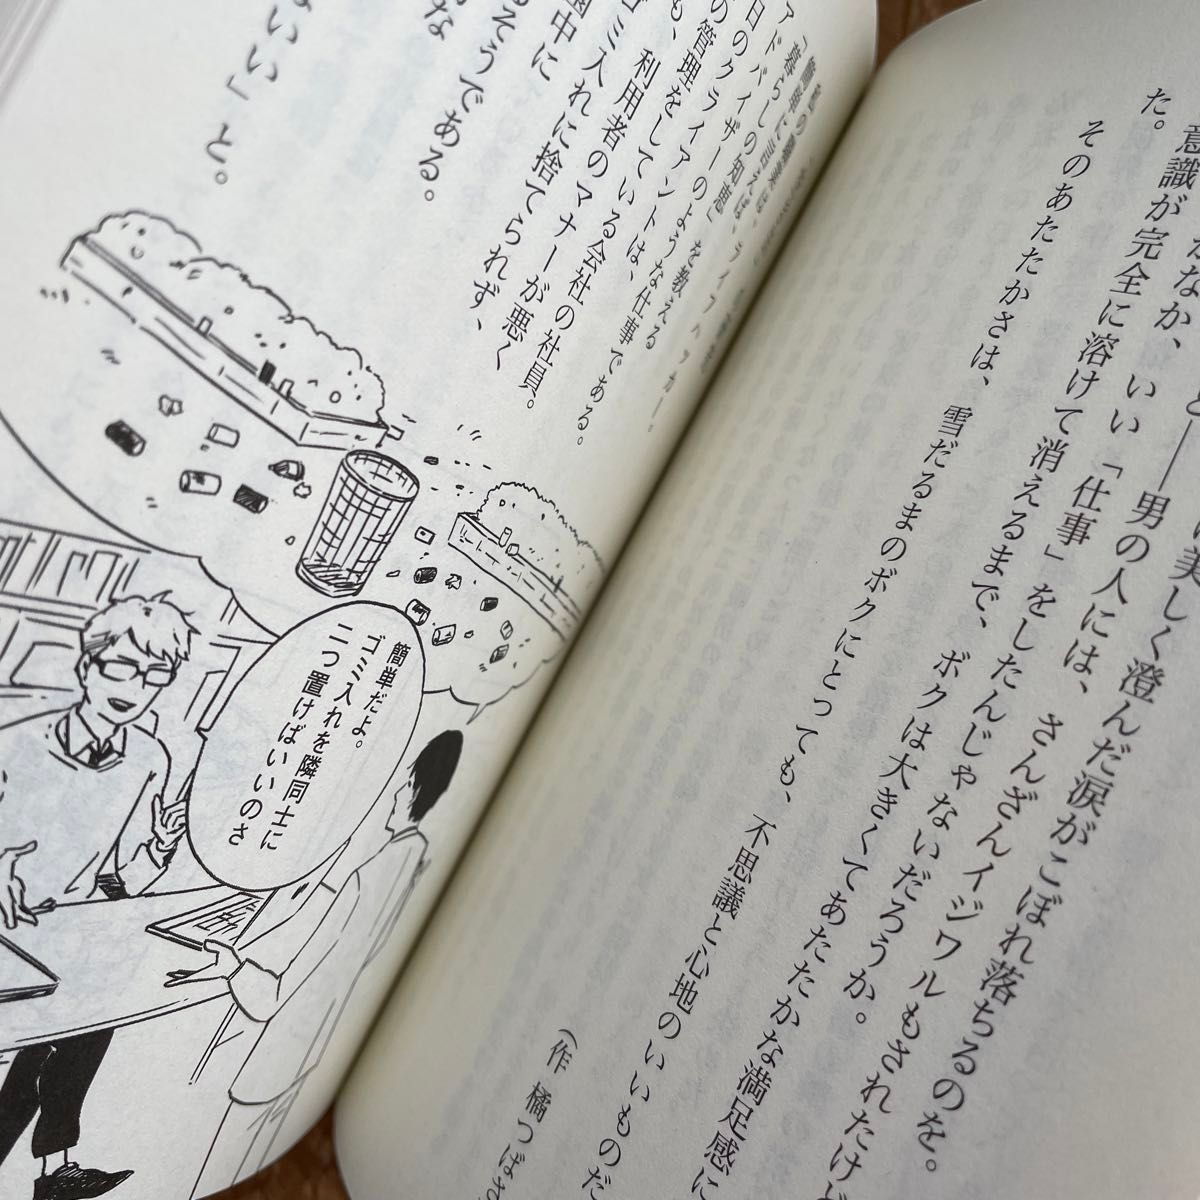 美しく澄んだ涙がこぼれ落ちるのを。
と――男の人には、さんざんイジワルもされたけど
なか、いい「仕事」をしたんじゃないだろうか。
意識が完全に溶けて消えるまで、ボクは大きくてあたたかな満足感に
た。
そのあたたかさは、雪だるまのボクにとっても、不思議と心地のいいものだ
(作 橘つばさ
ライフハッカー。
「暮らしの知恵」を教える
アドバイザーのような仕事である。
日のクライアントは、
の管理をしている会社の社員。
も、利用者のマナーが悪く
ゴミ入れに捨てられず、
園中に
な
るそうである。
いい」と。
簡単だよ。
ゴミ入れを隣同士に
二つ置けばいいのさ